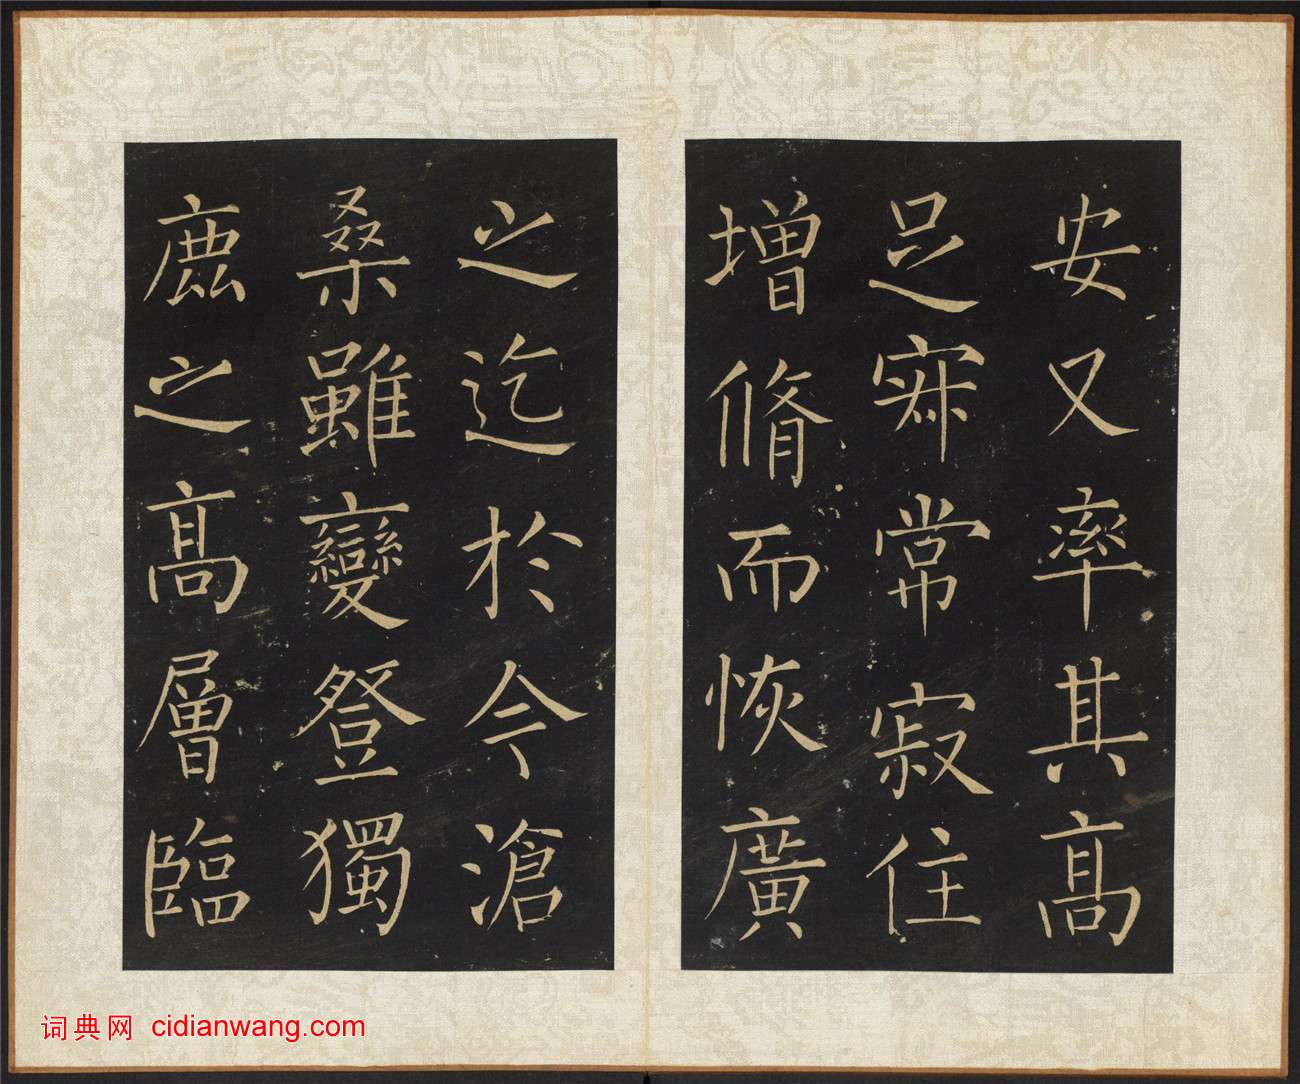 安又率其高
足寐常寂住
增脩而恢廣
之迄於今滄
桑雖變登獨
鹿之高層臨
词典网 cidianwang.com